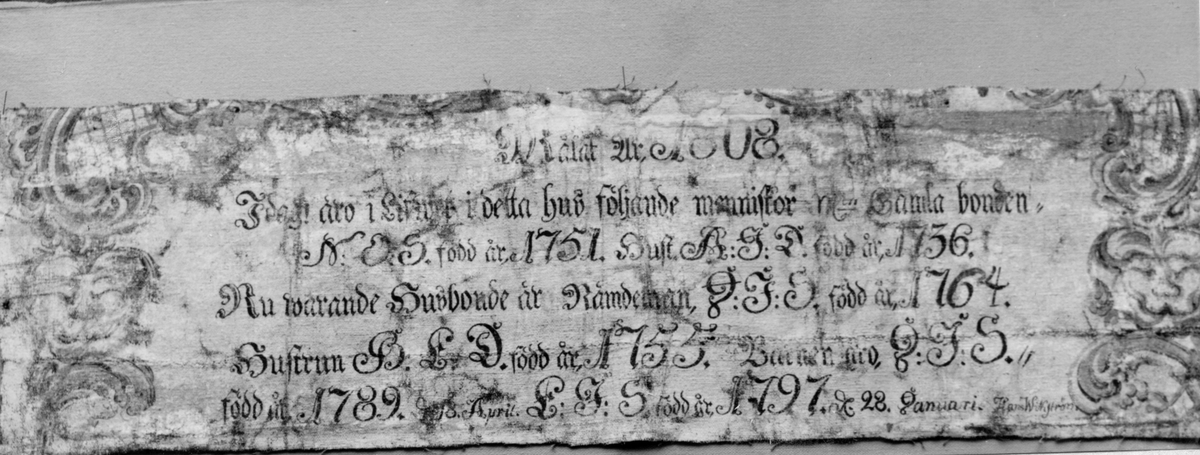 Målat År, 1808.
Idag äro i Lifwet i detta hus följande menniskor Gamla bonden,,
N: O: S. född år, 1751. Hust. A: I: D. född år, 1736.
Nu warande Husbonde är Nämdeman, J: I: S. född år, 1764.
Hustrun B. L: D. född år, 1755. Barnen äro, J: I: S.,,
född år, 1789. d. 8. April. L: I: S. född år, 1797. d. 28. Januari.